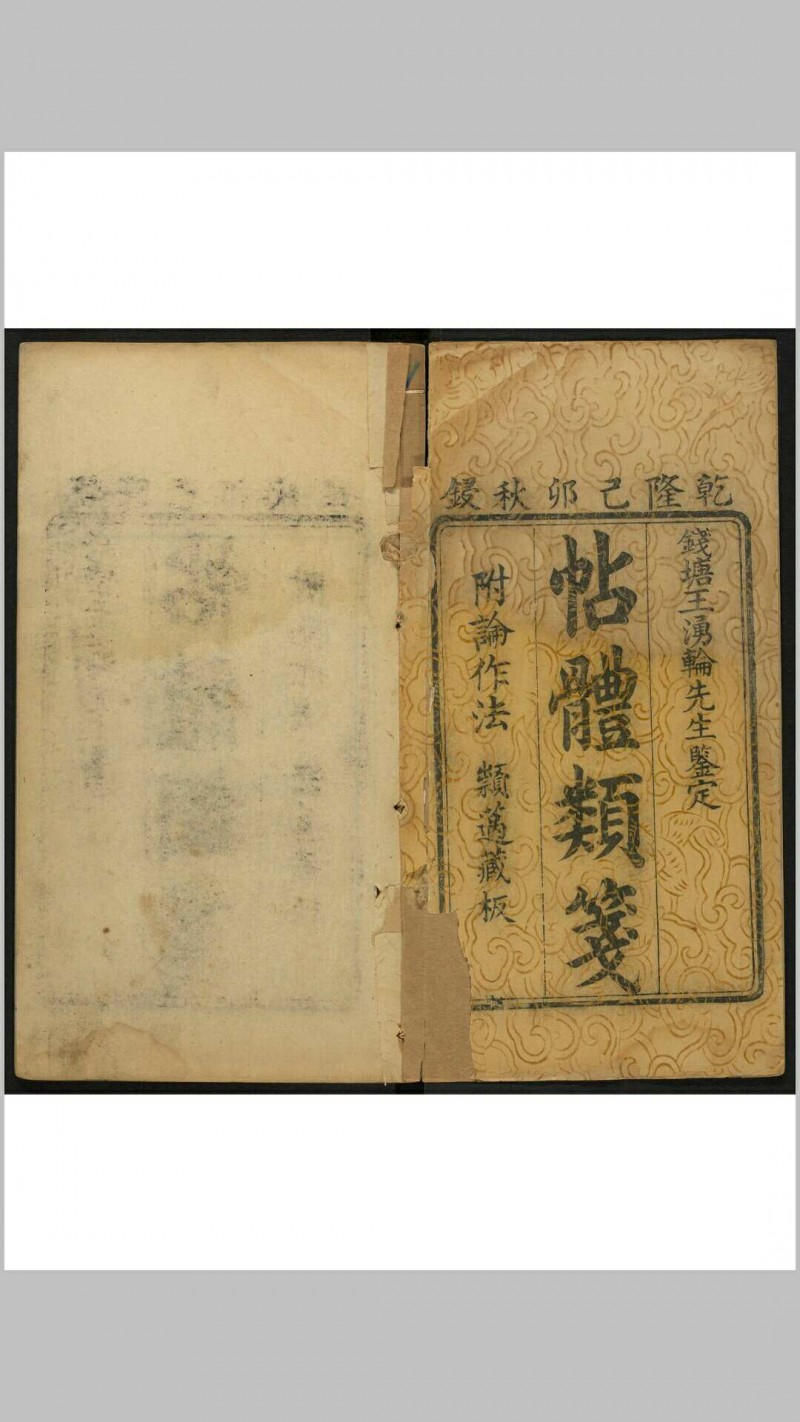 乾隆己卯秋鋟
錢塘王湧輪先生鑒定
帖體類箋
附論作法 類邁藏板